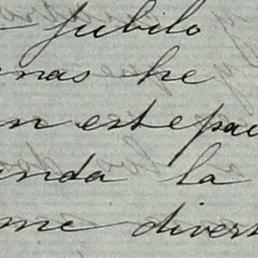 Jubilo
nas he
n este pa
nda la
me divers